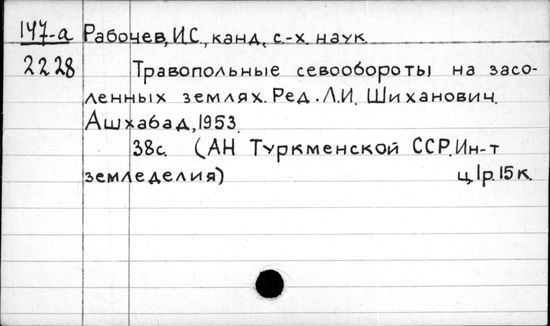 147-а Рабочев, И.С., канд. с.-х. наук.
2228 Травопольные севообороты на засо-
ленных землях. Ред. Л.И. Шиханович.
Ашхабад, 1953.
38с. (АН Туркменской ССР. Ин-т
земледелия) ц. 1р. 15к.